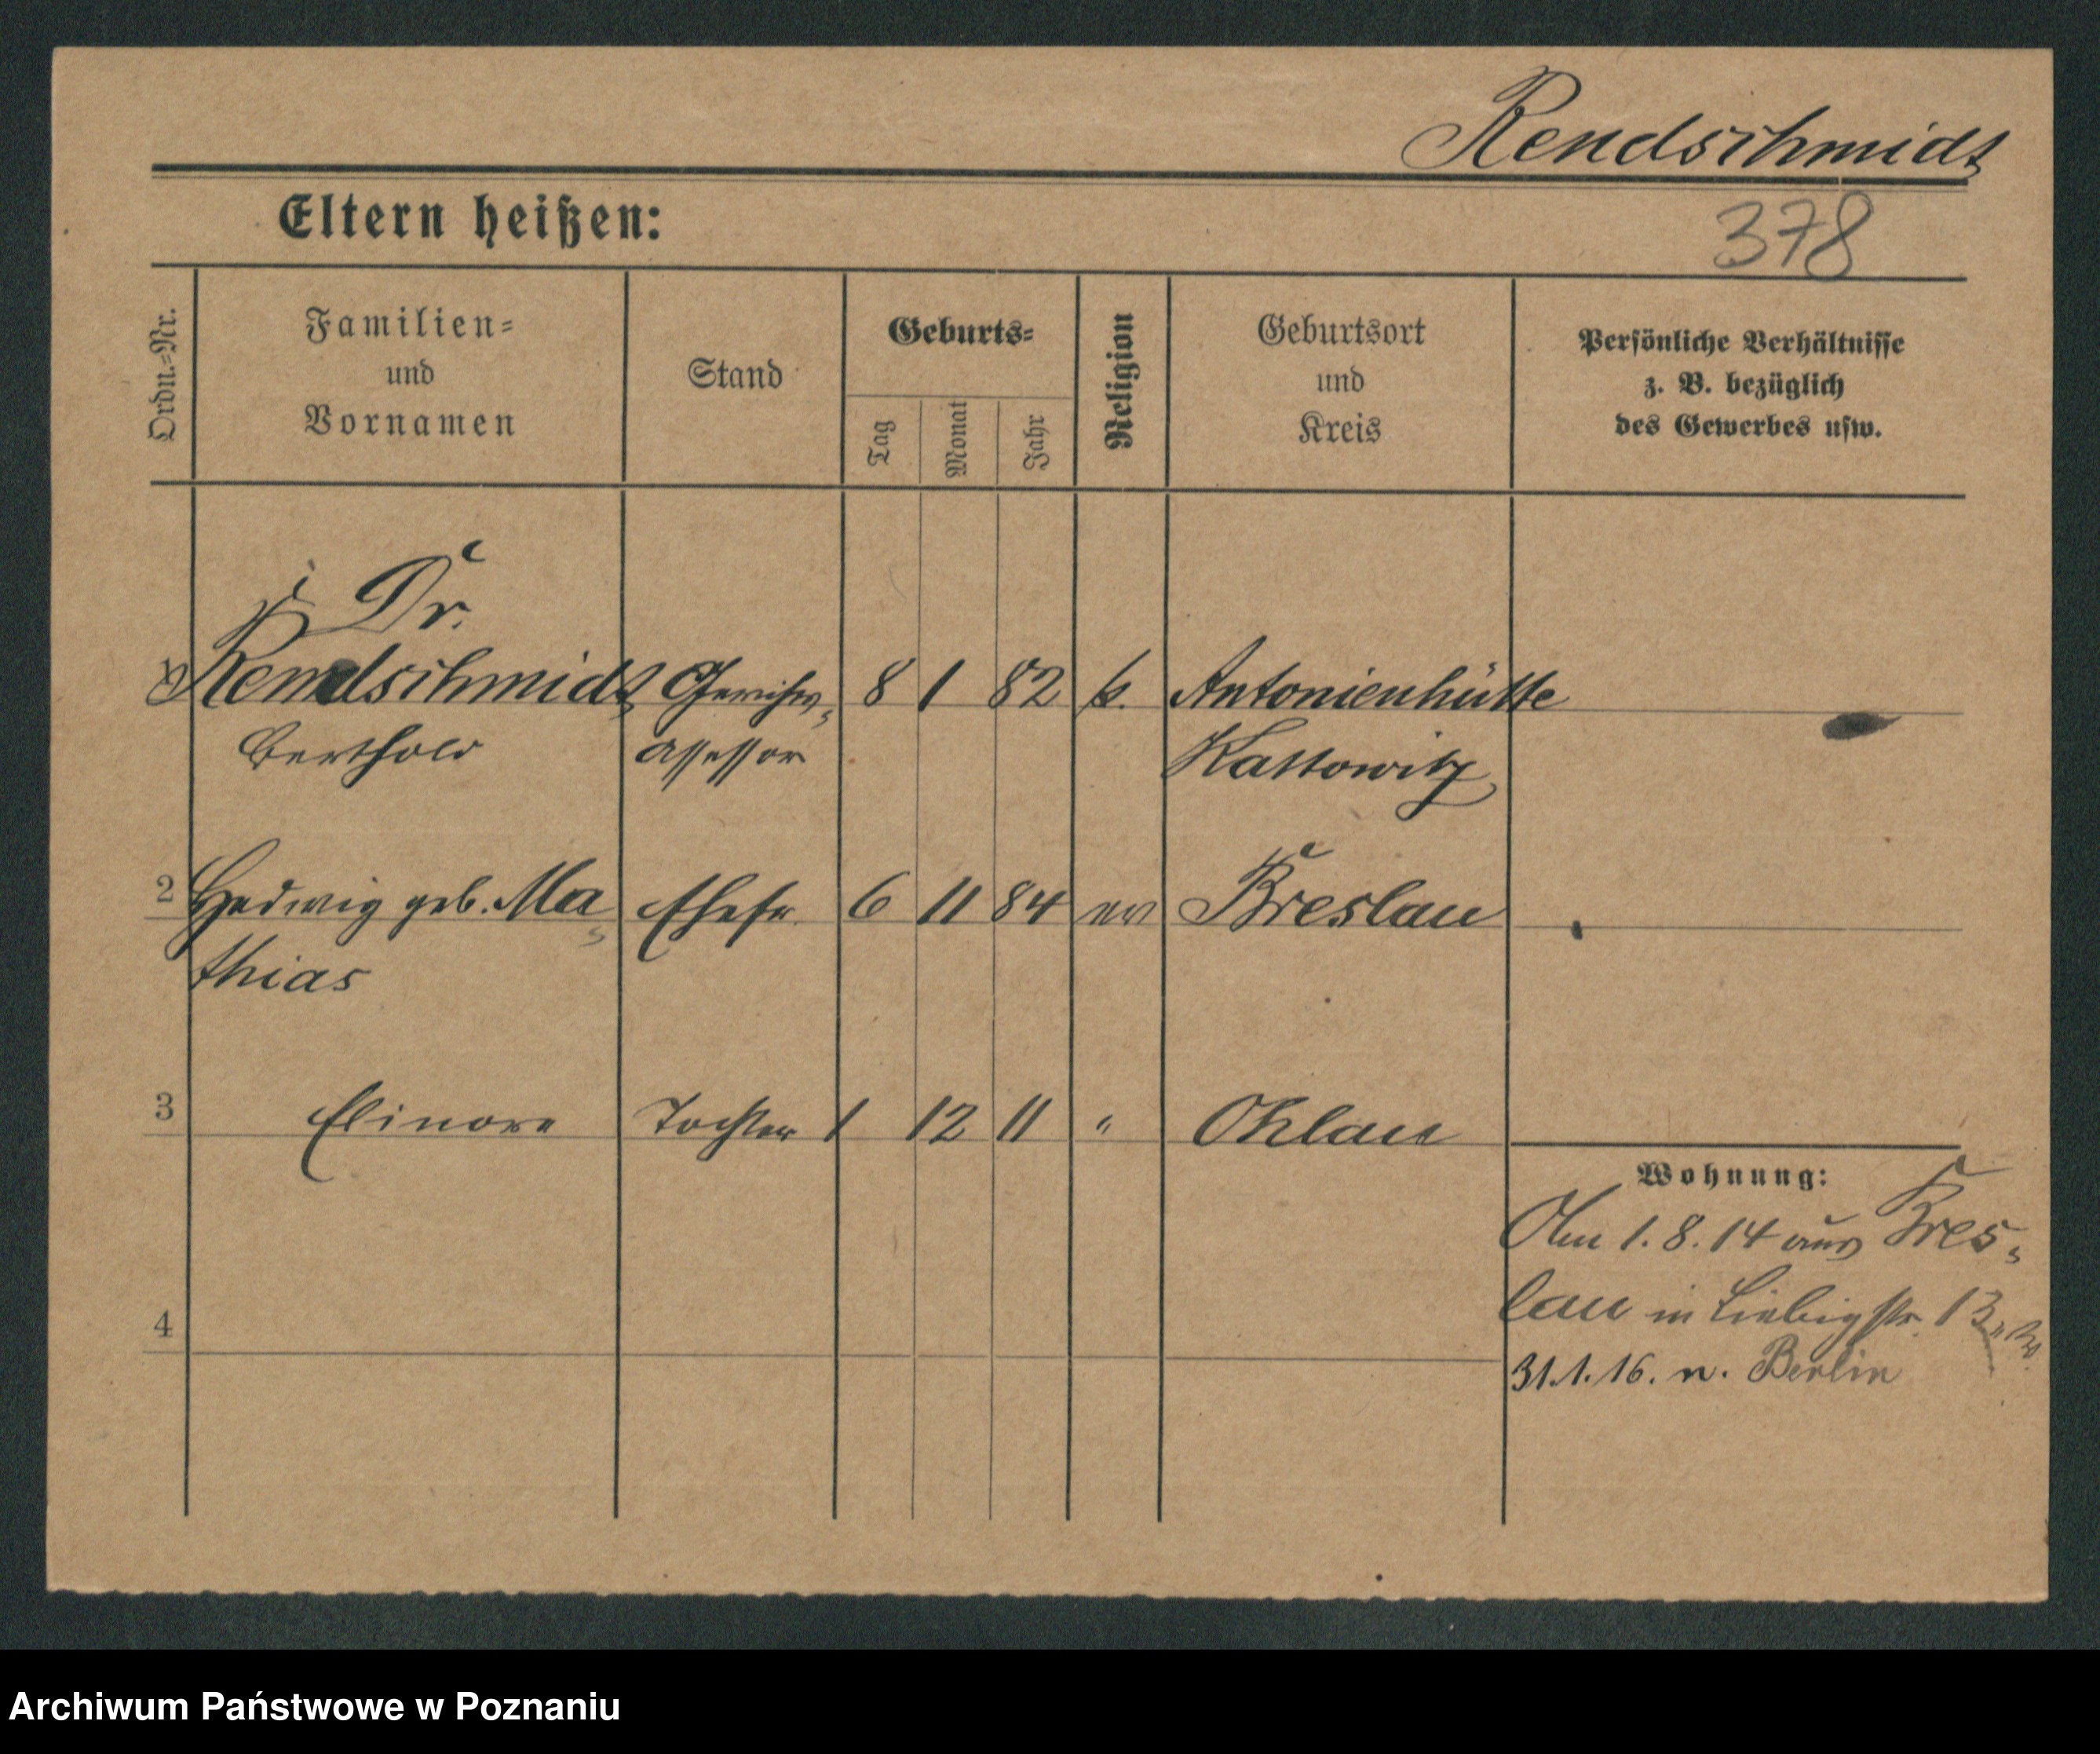 Rendschmidt
378
Eltern heißen:
Ordn.-Nr.
Familien-
und
Vornamen
Stand
Geburts-
Tag
Monat
Jahr
Religion
Geburtsort
und
Kreis
Persönliche Verhältnisse
z. B. bezüglich
des Gewerbes usw.
Dr.
Rendschmidt Gerichts- 8 1 82 k. Antonienhütte
Berthold assessor Kattowitz
2 Hedwig geb. Ma- Ehefr. 6 11 84 ev Breslau
thias
3 Elinore Tochter 1 12 11 " Ohlau
Wohnung:
Am 1.8.14 aus Bres-
lau in Liebigstr. 13
4
31.1.16. n. Berlin
Archiwum Państwowe w Poznaniu